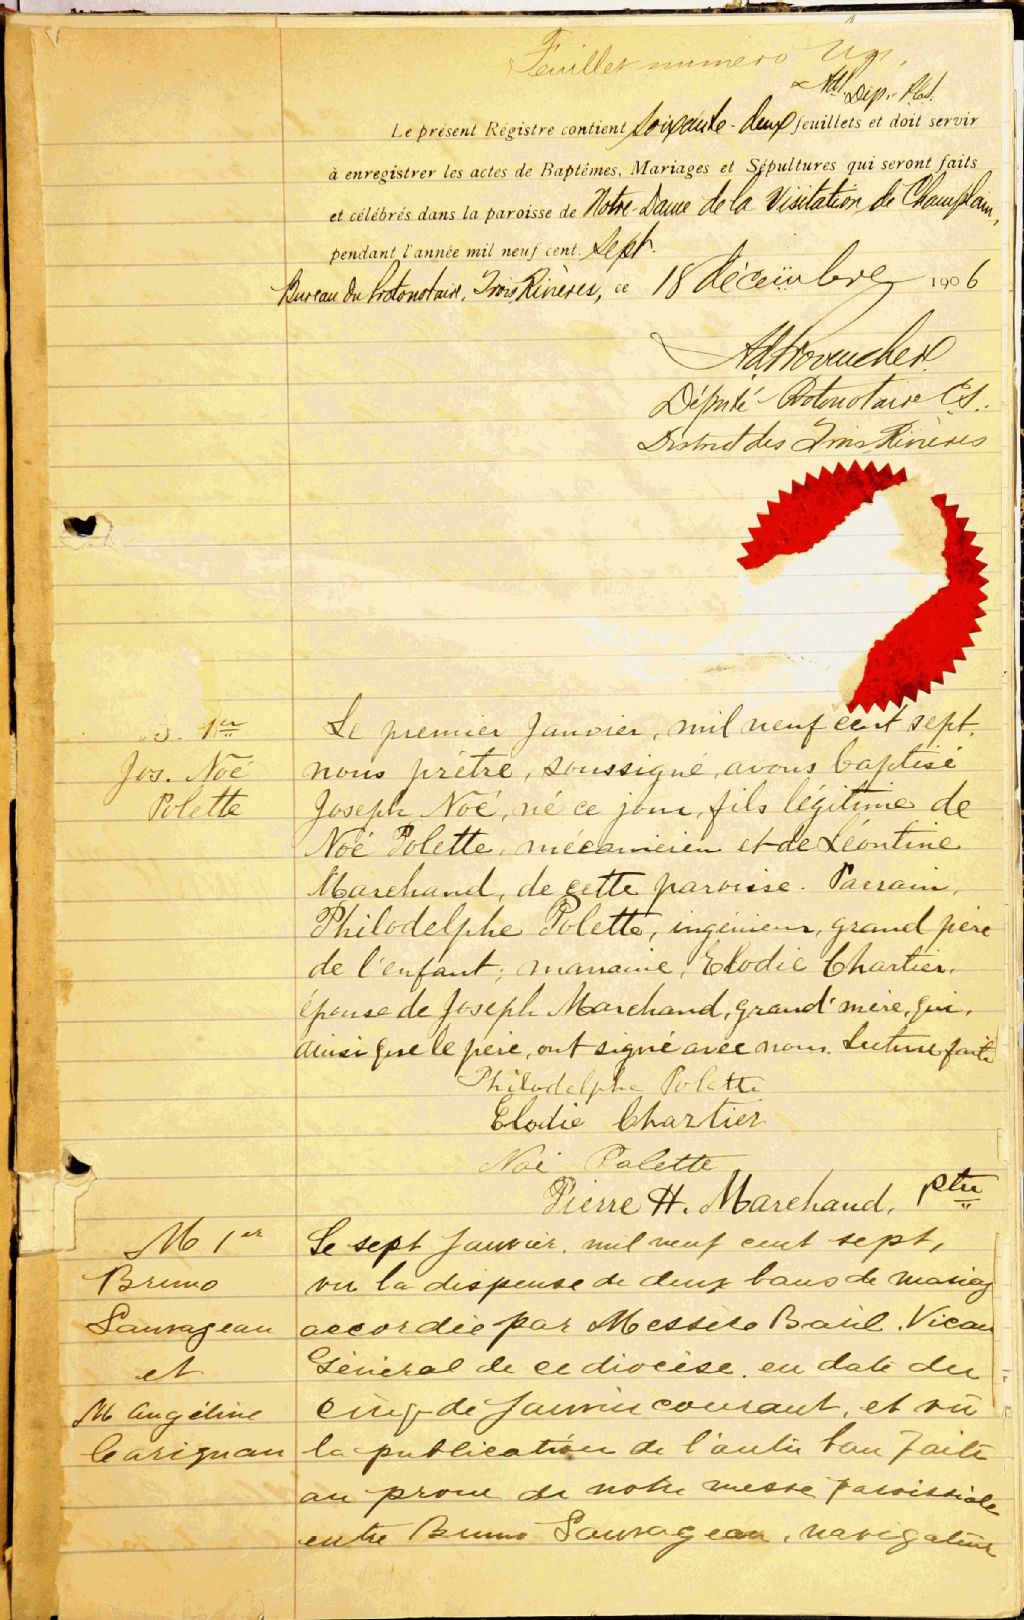 Feuillet numéro Un.
Dép. P.C.S.
Le présent Régistre contient soixante-deux feuillets et doit servir
à enregistrer les actes de Baptêmes, Mariages et Sépultures qui seront faits
et célébrés dans la paroisse de Notre-Dame de la Visitation de Champlain,
pendant l'année mil neuf cent. sept.
Bureau du Protonotaire, Trois Rivières, ce 18 décembre 1906
Ad Provencher
Député-Protonotaire C.S.
District des Trois Rivières
B. 1er
Jos. Noé
Polette
Le premier Janvier, mil neuf cent sept,
nous prêtre, soussigné, avons baptisé
Joseph Noé, né ce jour, fils légitime de
Noé Polette, mécanicien et de Léontine
Marchand, de cette paroisse. Parrain,
Philodelphe Polette, ingénieur, grand père
de l'enfant; marraine, Elodie Chartier,
épouse de Joseph Marchand, grand'mère, qui,
ainsi que le père, ont signé avec nous. Lecture faite
Philodelphe Polette
Elodie Chartier
Noé Polette
Pierre H. Marchand, ptre
M 1er
Bruno
Sauvageau
et
M Angéline
Carignan
Le sept Janvier, mil neuf cent sept,
vu la dispense de deux bans de mariag
accordée par Messire Baril, Vicai
Général de ce diocèse, en date du
cinq de Janvier courant, et vû
la publication de l'autre ban faite
au prone de notre messe paroissiale
entre Bruno Sauvageau, navigateur